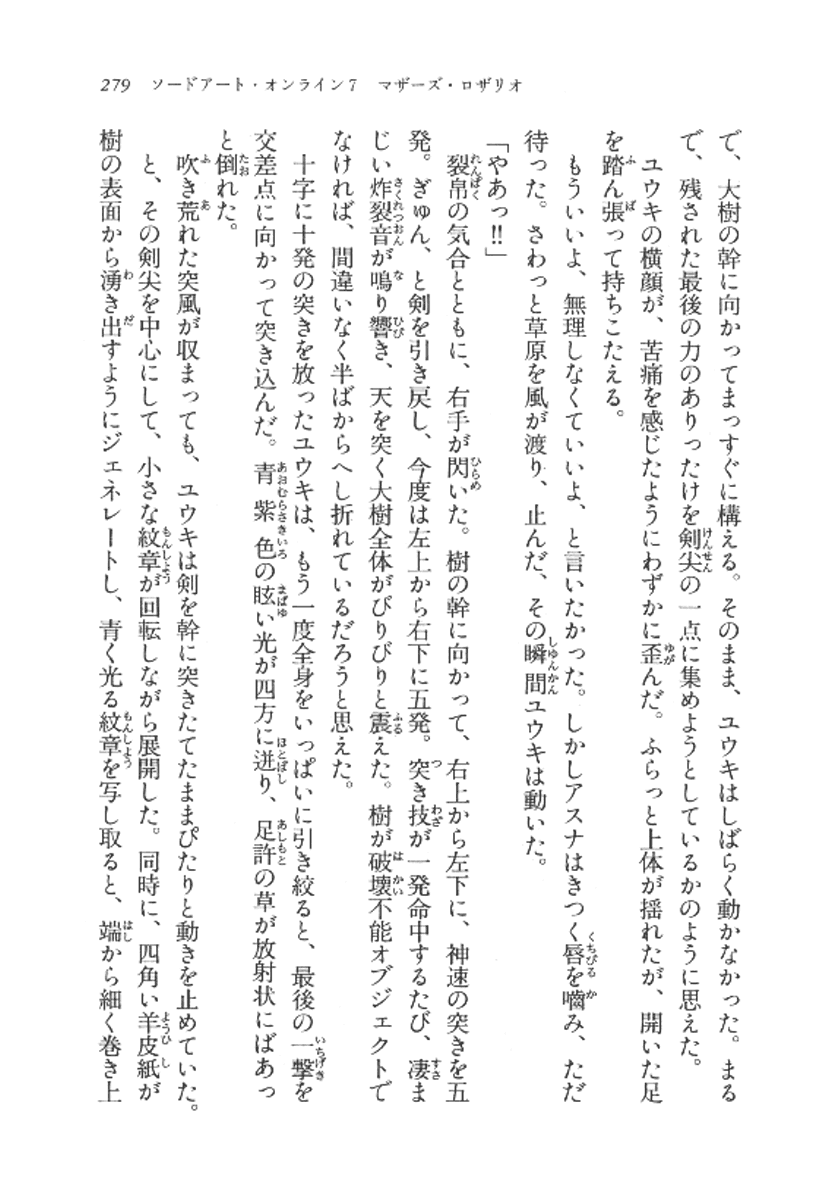 279　ソードアート・オンライン7　マザーズ・ロザリオ
で、大樹の幹に向かってまっすぐに構える。そのまま、ユウキはしばらく動かなかった。まる
で、残された最後の力のありったけを剣尖の一点に集めようとしているかのように思えた。
　ユウキの横顔が、苦痛を感じたようにわずかに歪んだ。ふらっと上体が揺れたが、開いた足
を踏ん張って持ちこたえる。
　もういいよ、無理しなくていいよ、と言いたかった。しかしアスナはきつく唇を嚙み、ただ
待った。さわっと草原を風が渡り、止んだ、その瞬間ユウキは動いた。
「やあっ!!」
　裂帛の気合とともに、右手が閃いた。樹の幹に向かって、右上から左下に、神速の突きを五
発。ぎゅん、と剣を引き戻し、今度は左上から右下に五発。突き技が一発命中するたび、凄ま
じい炸裂音が鳴り響き、天を突く大樹全体がびりびりと震えた。樹が破壊不能オブジェクトで
なければ、間違いなく半ばからへし折れているだろうと思えた。
　十字に十発の突きを放ったユウキは、もう一度全身をいっぱいに引き絞ると、最後の一撃を
交差点に向かって突き込んだ。青紫色の眩い光が四方に迸り、足許の草が放射状にばあっ
と倒れた。
　吹き荒れた突風が収まっても、ユウキは剣を幹に突きたてたままぴたりと動きを止めていた。
　と、その剣尖を中心にして、小さな紋章が回転しながら展開した。同時に、四角い羊皮紙が
樹の表面から湧き出すようにジェネレートし、青く光る紋章を写し取ると、端から細く巻き上